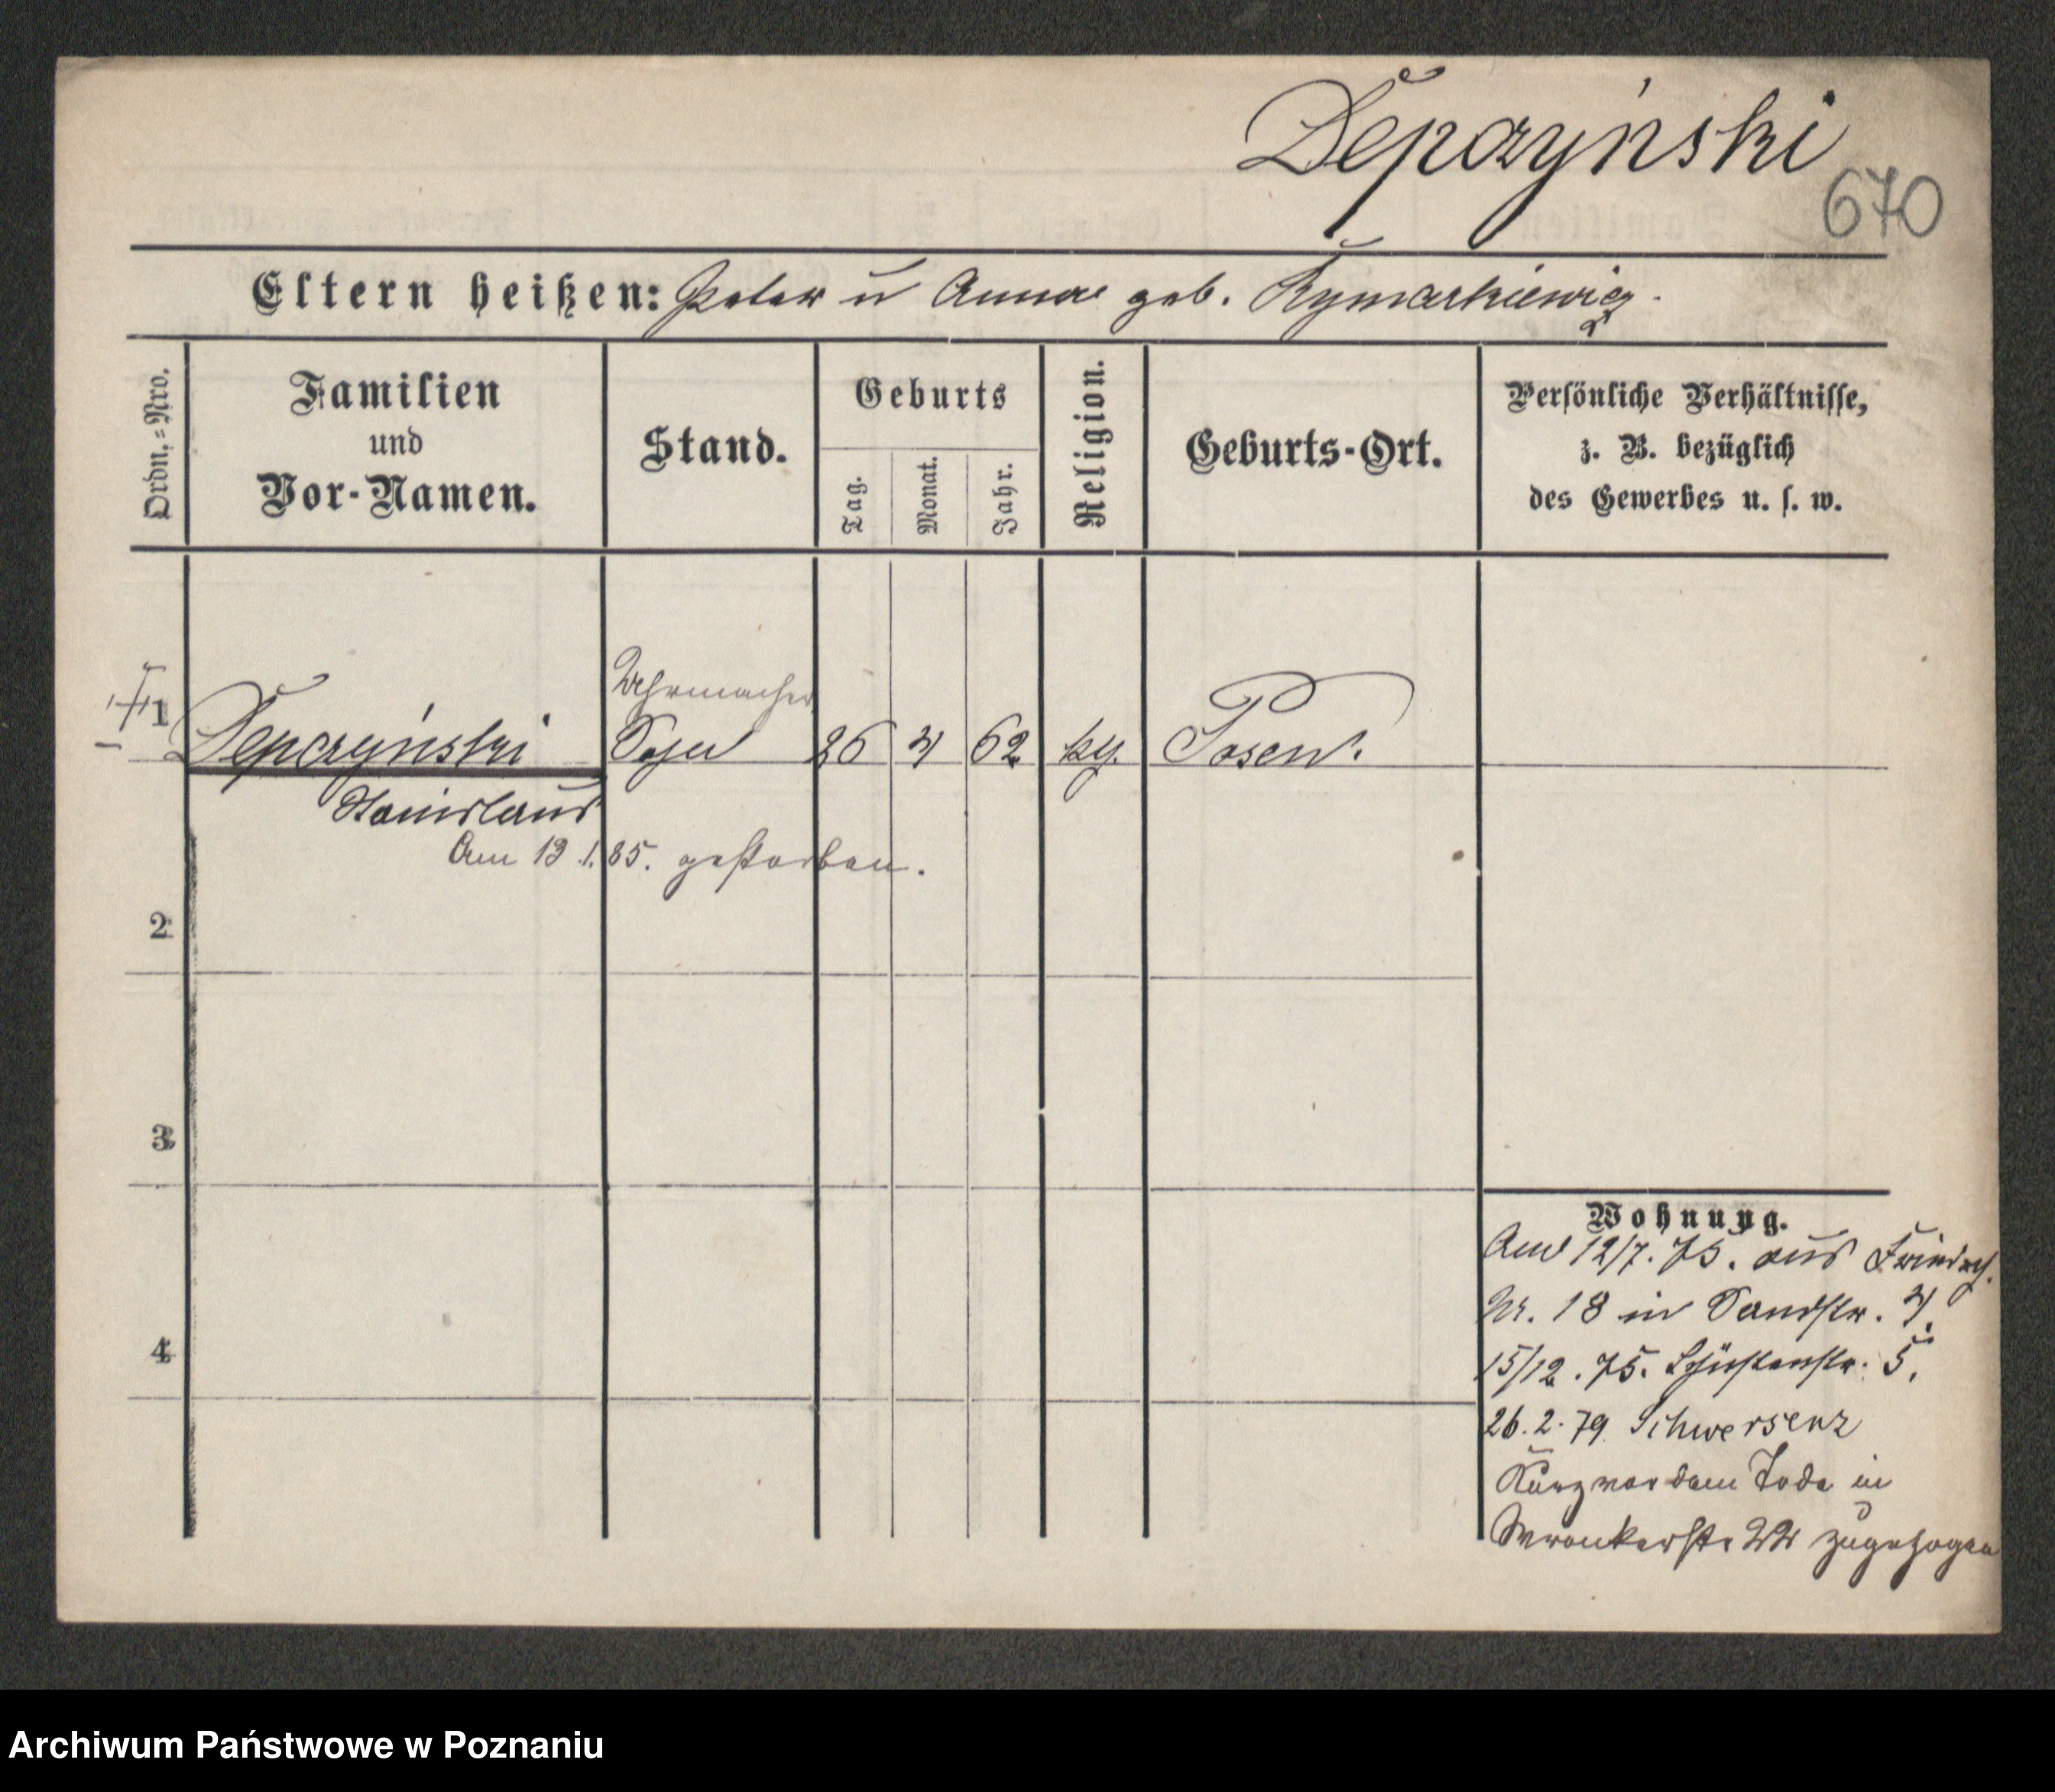 Depczyński
670
Eltern heißen: Peter u Anna geb. Rymarkiewicz.
Ordn.=Nro.
Familien
und
Vor-Namen.
Stand.
Geburts
Tag.
Monat.
Jahr.
Religion.
Geburts-Ort.
Persönliche Verhältnisse,
z. B. bezüglich
des Gewerbes u. s. w.
Uhrmacher
1 Depczyński Sohn 26 4 62 kth. Posen.
Stanislaus
Am 19.1.85. gestorben.
2
3
4
Wohnung.
Am 12/7. 75. aus Friedrch.
Nr. 18 in Sandstr. 4.
15/12. 75. Schützenstr. 5.
26.2.79. Schwersenz
Kurz vor dem Tode in
Wronkerstr 22 zugezogen
Archiwum Państwowe w Poznaniu